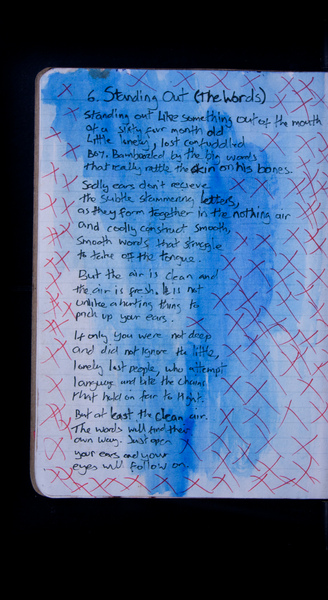 6. Standing Out (The Words)
Standing out like something out of the mouth
of a sixty four month old
Little lonely, lost confuddled
Boy. Bombarded by the big words
that really rattle the skin on his bones.
Sadly ears don't recieve
the subtle stammering letters,
as they form together in the nothing air
and coolly construct smooth,
smooth words that struggle
to take off the tongue.
But the air is clean and
the air is fresh. It is not
unlike a hurting thing to
prick up your ears.
If only you were not deep
and did not ignore the little,
lonely lost people, who attempt
language and bite the chains
that hold on fear to
But at least the clean air.
The words will find their
own way. Just open
your ears and your
eyes will follow on.